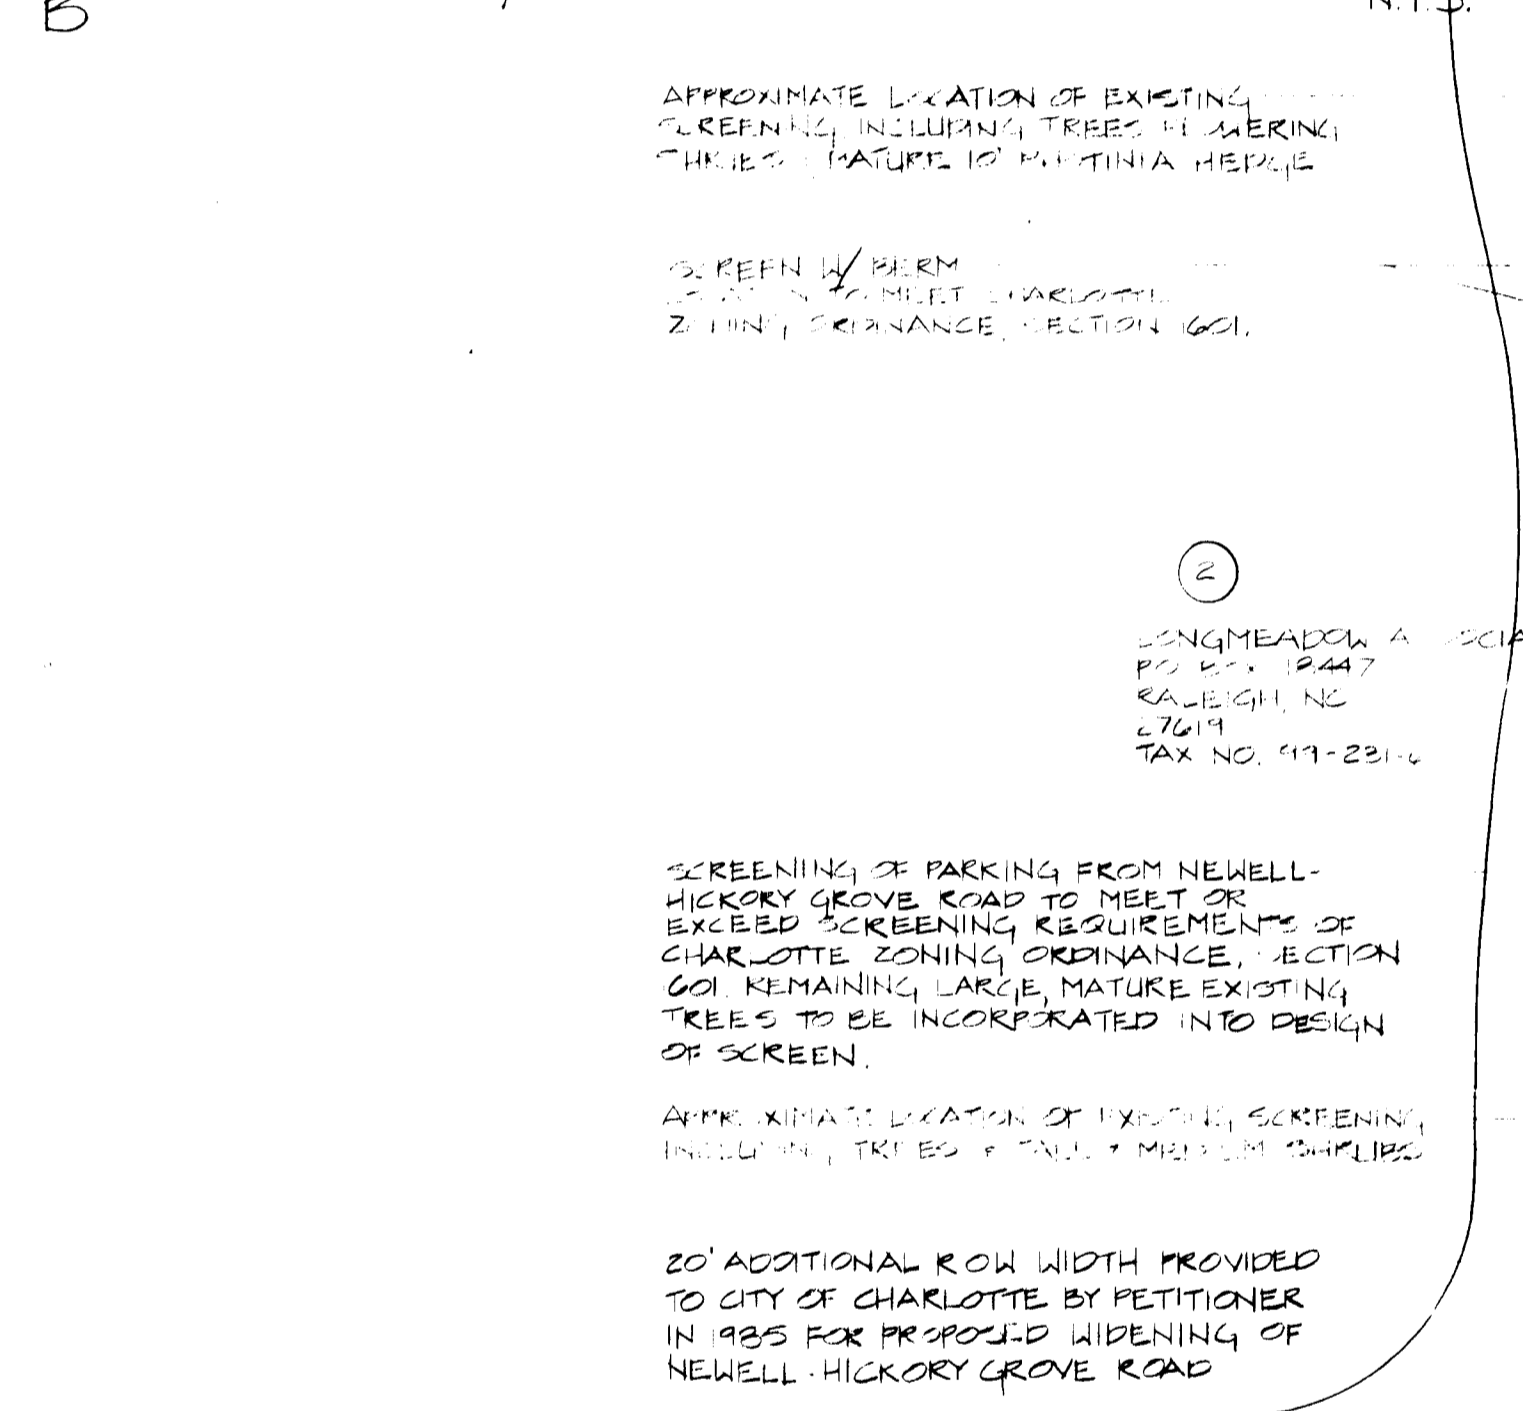 B
N.T.S.
APPROXIMATE LOCATION OF EXISTING
SCREENING, INCLUDING TREES FLOWERING
MATURE 10' PHOTINIA HEDGE
SCREEN W/ BERM
LOCATION TO MEET CHARLOTTE
ZONING ORDINANCE, SECTION 1601.
2
LONGMEADOW
PO BOX
RALEIGH, NC
27619
TAX NO.
SCREENING OF PARKING FROM NEWELL-
HICKORY GROVE ROAD TO MEET OR
EXCEED SCREENING REQUIREMENTS OF
CHARLOTTE ZONING ORDINANCE, SECTION
1601. REMAINING LARGE, MATURE EXISTING
TREES TO BE INCORPORATED INTO DESIGN
OF SCREEN.
APPROXIMATE LOCATION OF EXISTING SCREENING
INCLUDING TREES & TALL & MEDIUM SHRUBS
20' ADDITIONAL ROW WIDTH PROVIDED
TO CITY OF CHARLOTTE BY PETITIONER
IN 1985 FOR PROPOSED WIDENING OF
NEWELL-HICKORY GROVE ROAD